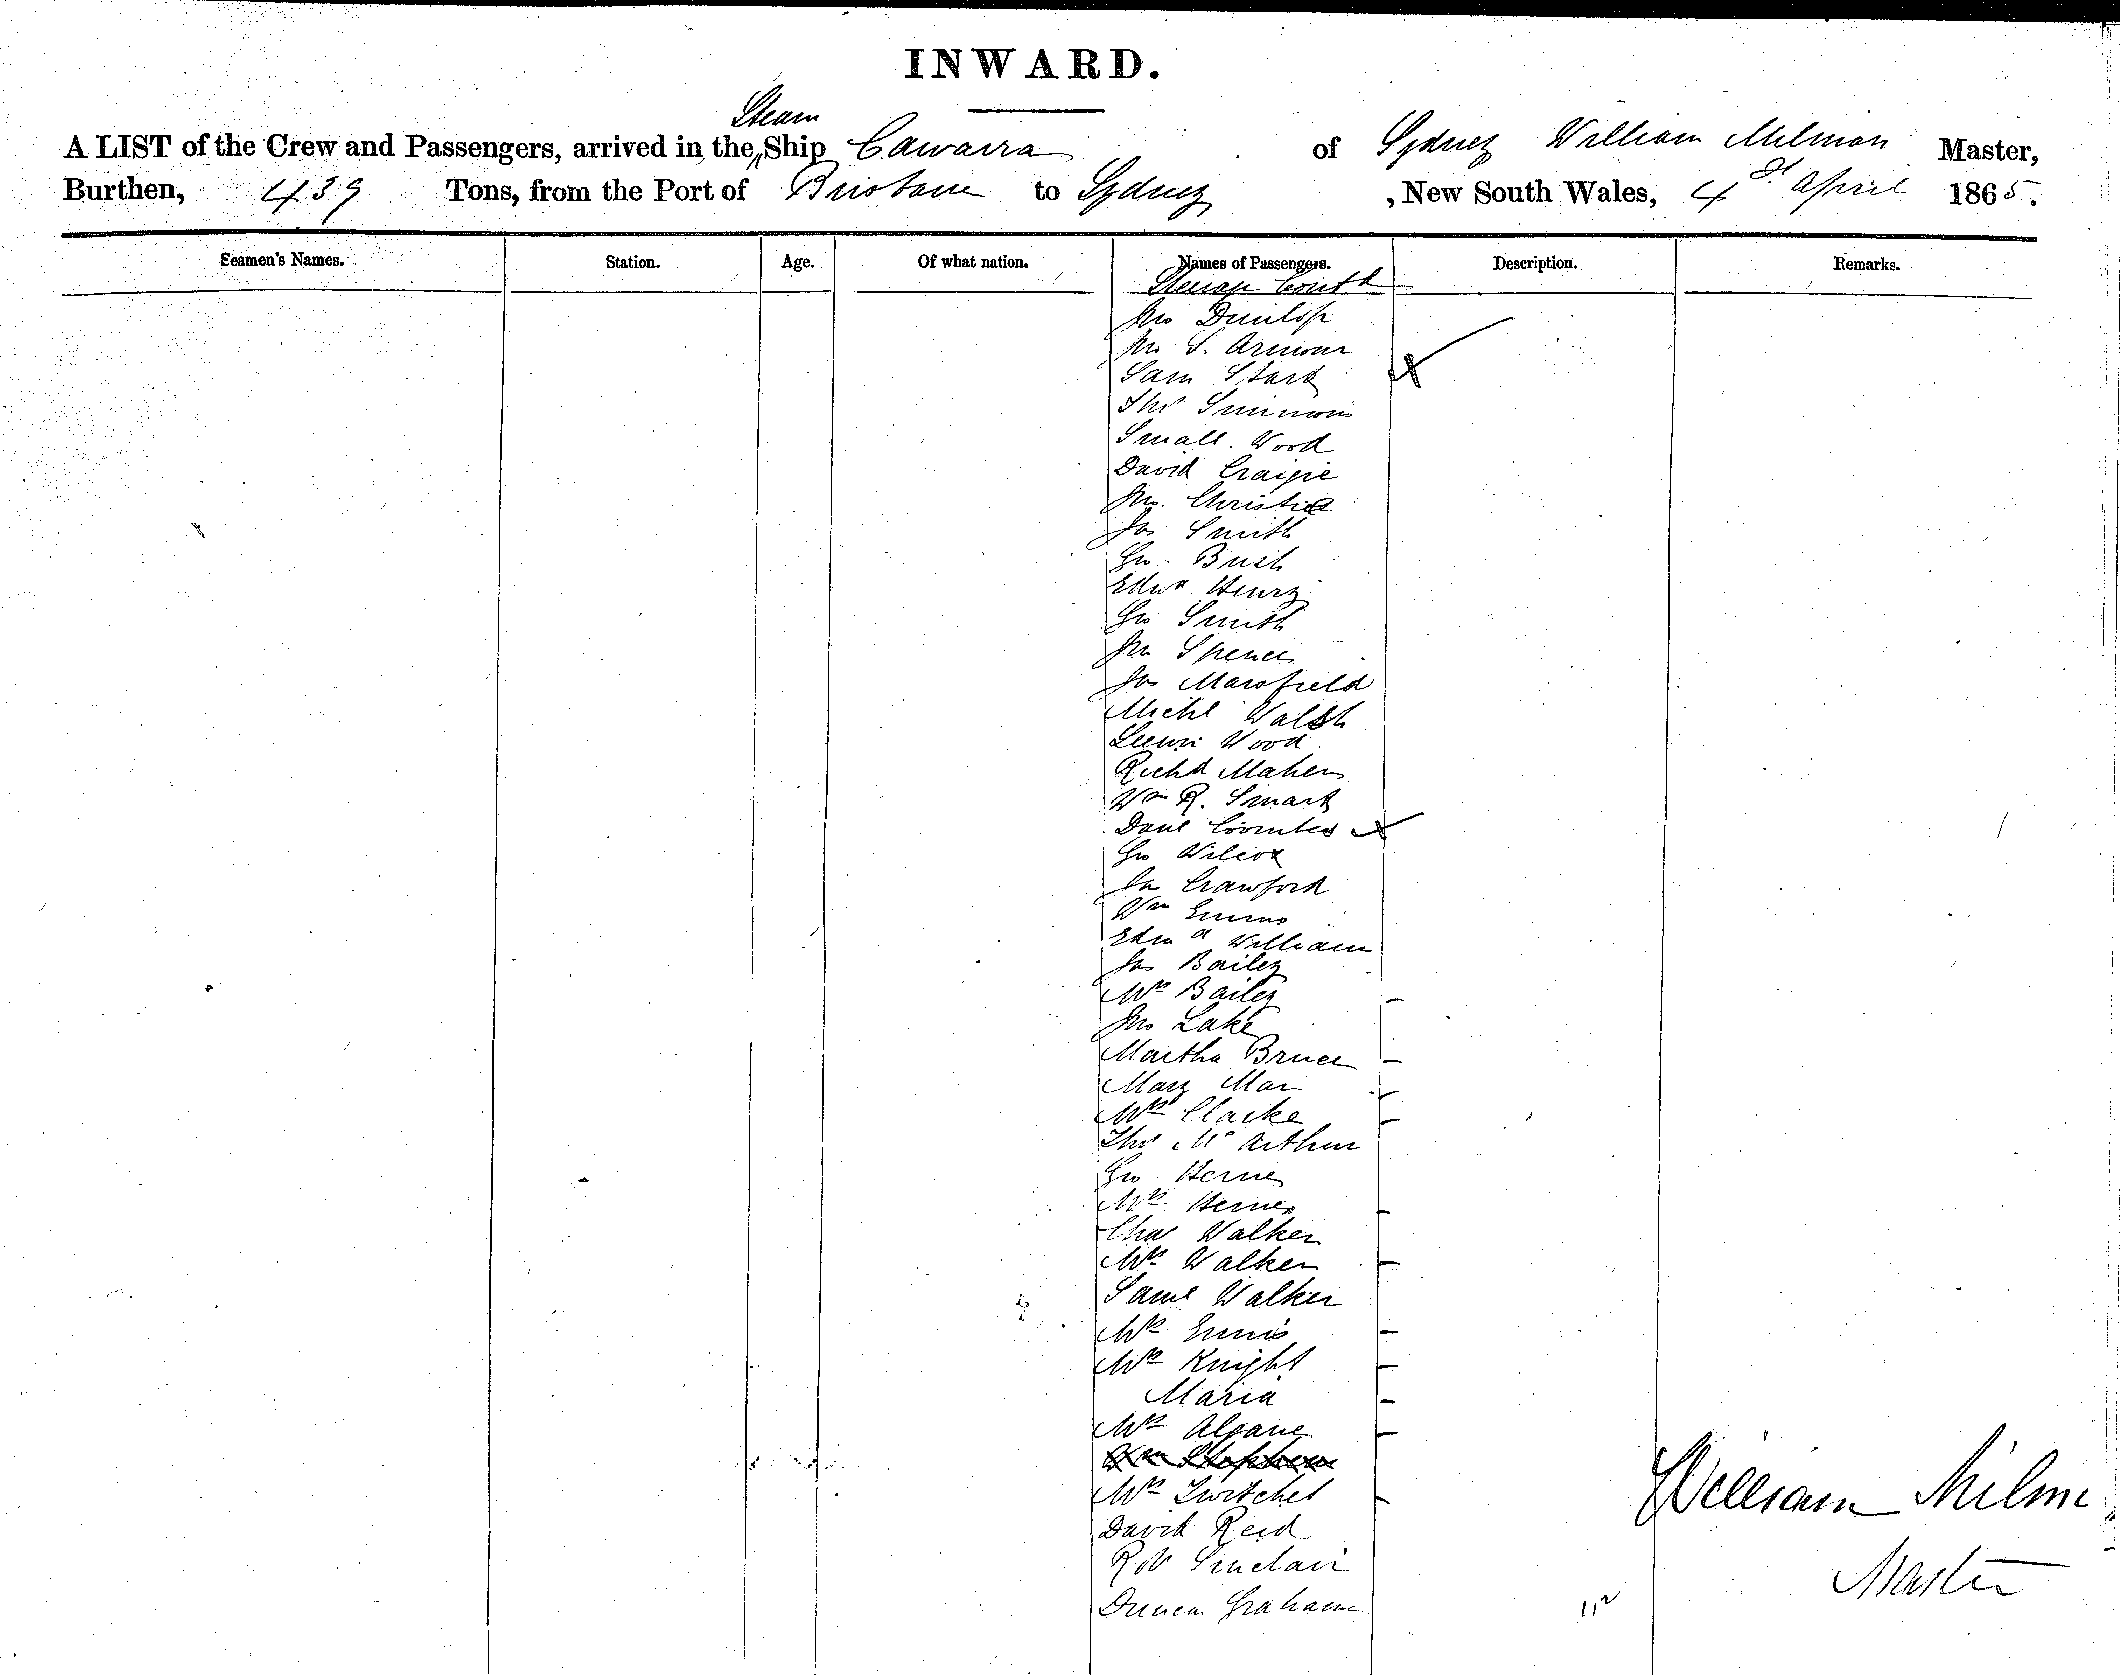 INWARD.
Steam
A LIST of the Crew and Passengers, arrived in the Ship Cawarra of Sydney William Milman Master,
Burthen, 439 Tons, from the Port of Brisbane to Sydney , New South Wales, 4th April 1865.
Seamen's Names. Station. Age. Of what nation. Names of Passengers. Description. Remarks.
Steerage Contd
Jno Dunlop
Jno S. Armour
Sam Stark
Thos Simmons
Small. Wood
David Craigie
Jno. Christie
Jas Smith
Geo. Bush
Edwd Henry
Geo Smith
Jno Spence
Jas Marsfield
Michl Walsh
Wood
Richd Maher
Wm R. Smart
Danl Coombes
Geo Wilcox
Jas Crawford
Wm Emms
Edwd William
Jas Bailey
Mrs Bailey
Jno Lake
Martha Bruce
Mary Mar
Mrs Clarke
Thos McArthur
Geo Herne
Mrs Herne
Chas Walker
Mrs Walker
Saml Walker
Mrs Ennis
Mrs Knight
Maria
Mrs
Wm Stephen
Mrs Twitchet
David Reid
Robt Sinclair
Duncan Graham
William Milm
Master